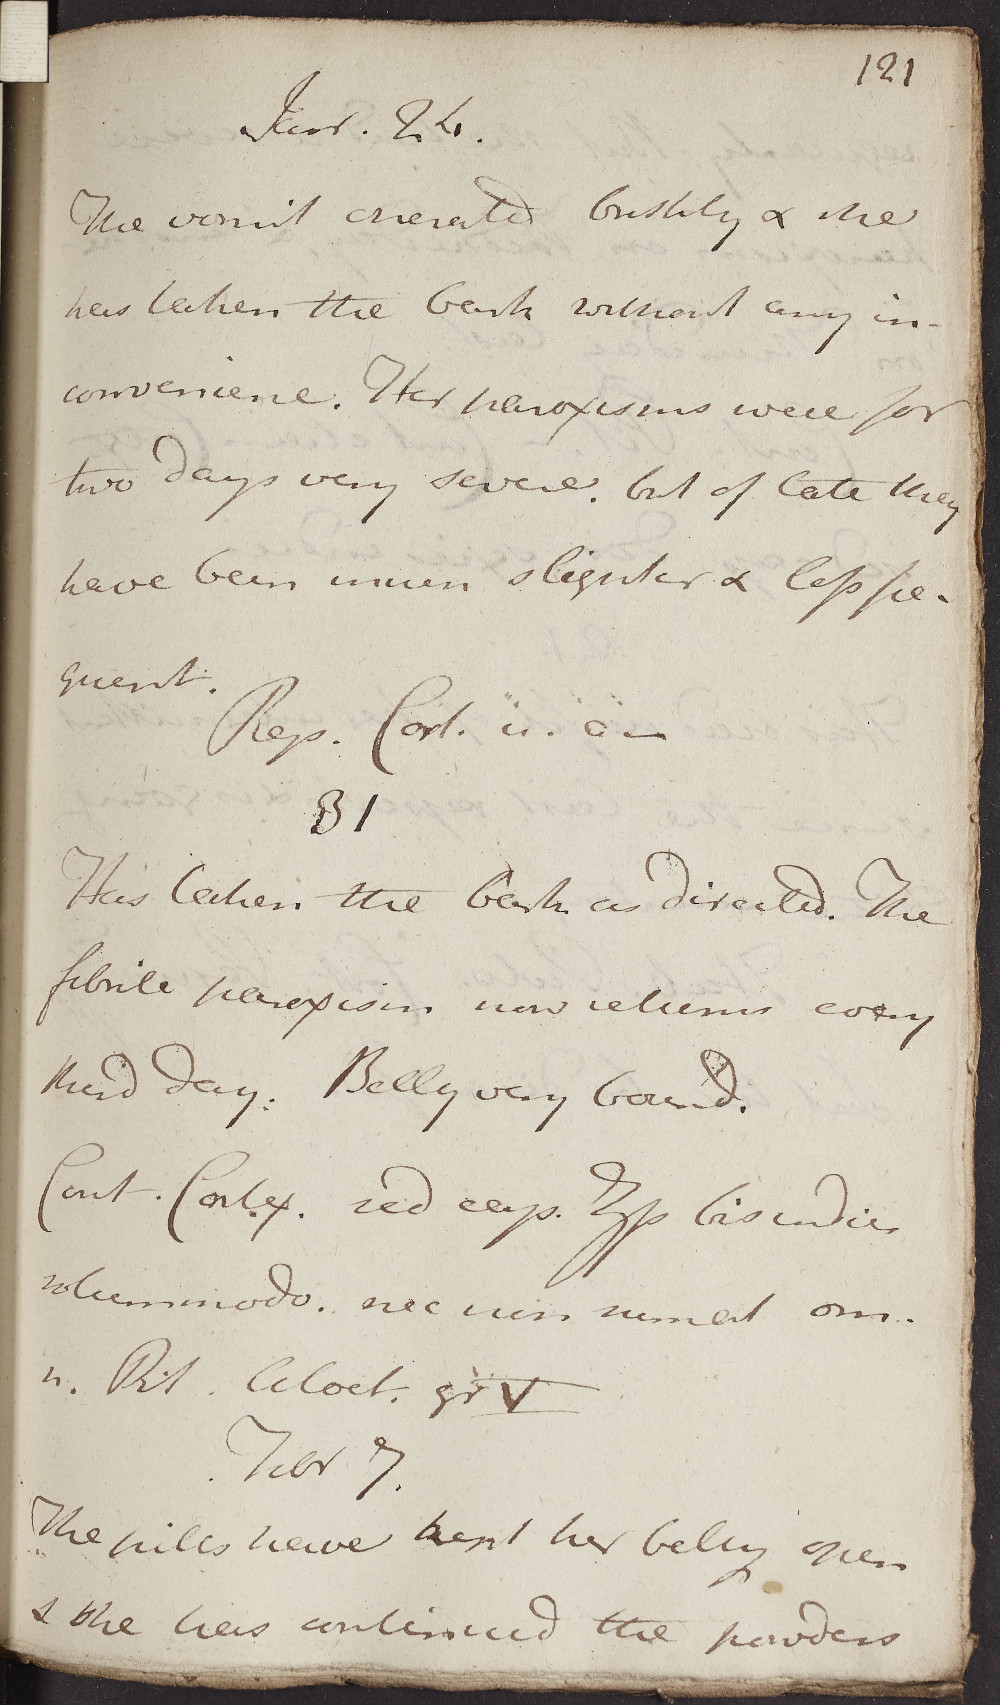 121
Janr. 24.
The vomit operated briskly & she
has taken the bark without any in-
convenience. Her paroxisms were for
two days very severe. but of late they
have been much slighter & less fre-
quent.
Rep. Cort. ü. ä
31
Has taken the bark as directed. The
febrile paroxism now returns every
third day. Belly very bound.
Cont. Cortex. sed cap. ʒſs bis indies
solummodo. nec non sumat om.
n. Pil. Aloet. gr V
Febr 7.
The pills have kept her belly open
& she has continued the powders